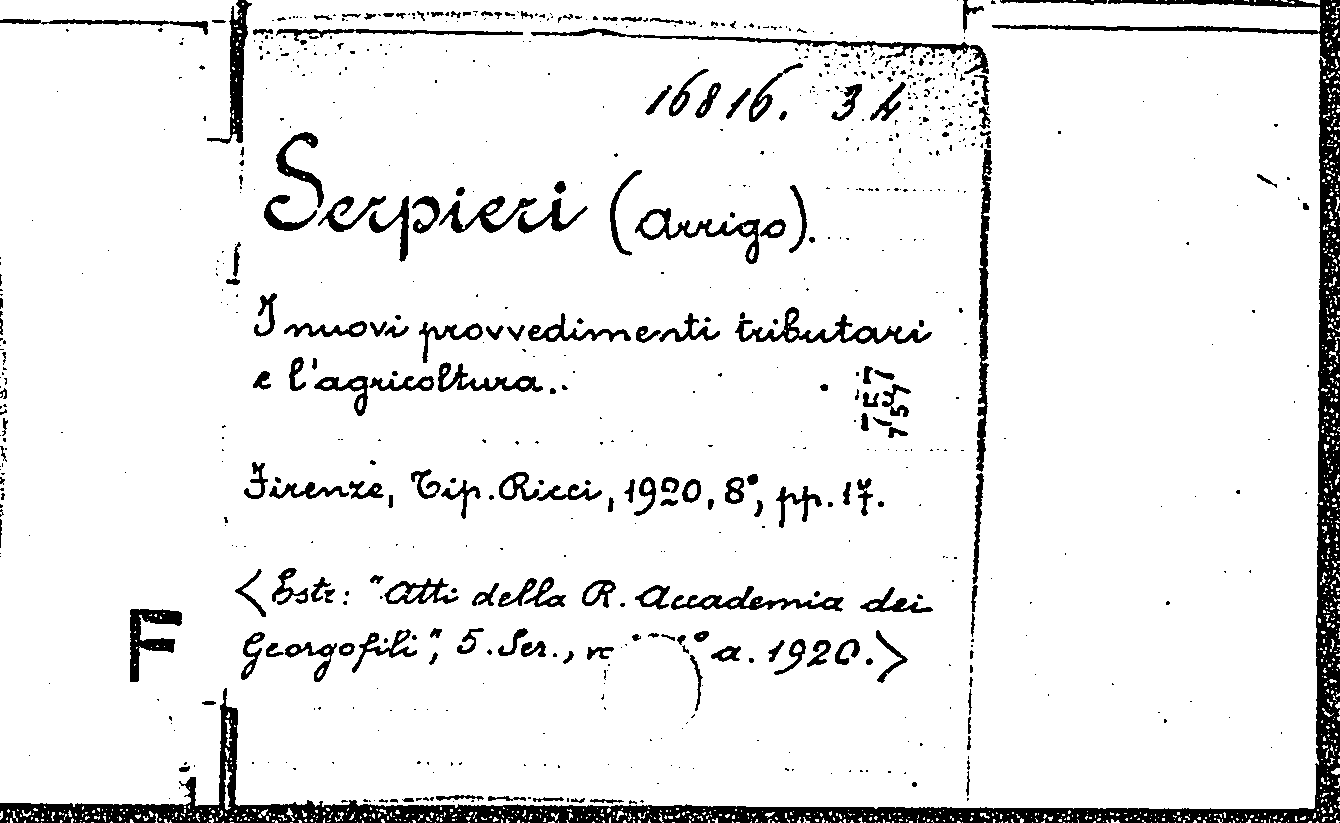 16816. 34
Serpieri (Arrigo).
I nuovi provvedimenti tributari
e l'agricoltura..
Firenze, Tip. Ricci, 1920, 8°, pp. 17.
<Estr: "Atti della R. Accademia dei
F
Georgofili", 5. Ser., a. 1920.>